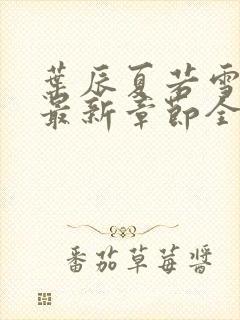 葉辰夏若雪
最新章節全
番茄草莓醬